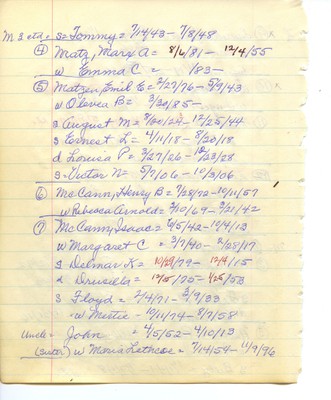 M 3 ctd = s = Tommy = 7/14/43 - 7/8/48
④ Matz, Marx A = 8/6/81 - 12/4/55
w Emma C = /83 -
⑤ Matzen, Emil E = 2/27/76 - 5/9/43
w Olevea B = 3/20/85 -
s August M = 8/20/24 - 12/25/44
s Ernest L = 4/11/18 - 8/20/18
d Louisa P = 3/27/26 - 10/23/28
s Victor N = 5/7/06 - 10/3/06
⑥ McCann, Henry B = 7/28/72 - 10/11/57
w Rebecca Arnold = 2/10/69 - 3/21/42
⑦ McCann, Isaac = 6/5/42 - 10/4/13
w Margaret C = 3/7/40 - 2/28/17
s Delmar K = 10/29/79 - 12/4/15
d Drusilla = 12/5/75 - 1/25/53
s Floyd = 2/4/71 - 3/9/33
w Mistie - 10/11/74 - 8/7/58
Uncle = John = 4/5/52 - 4/10/13
(Sister) w Maria Lethcoe = 7/14/54 - 11/9/96